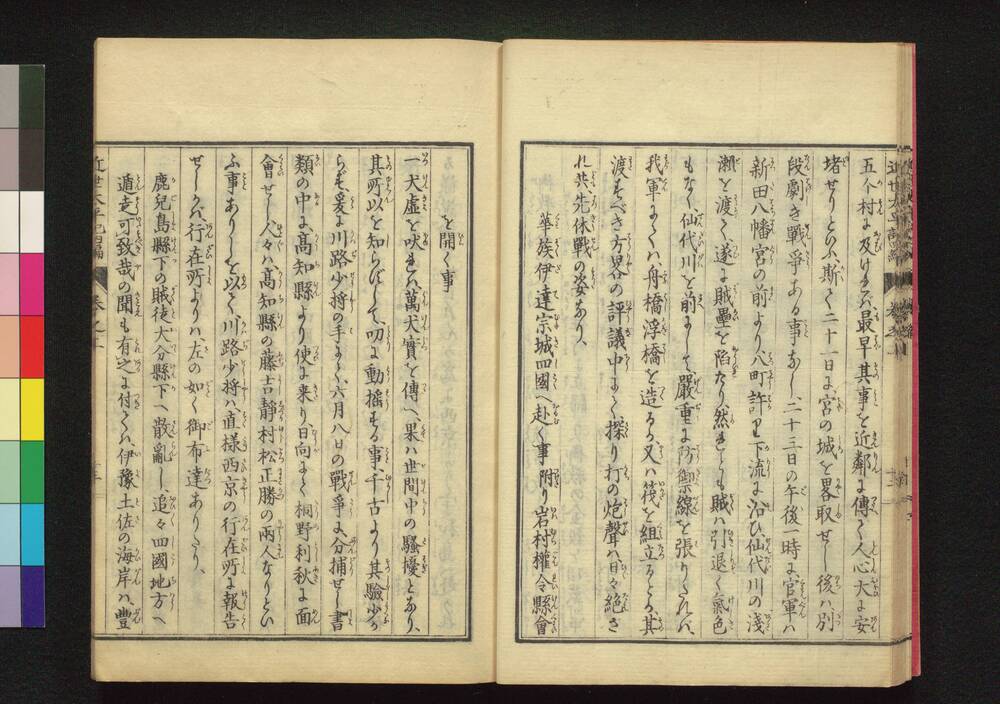 五个村に及びければ最早其事を近鄰に傳へ人心大に安
堵せりといふ斯て二十一日に宮の城を畧取せし後ハ別
段劇き戰爭ある事なし二十三日の午後一時に官軍ハ
新田八幡宮の前より八町許り下流に沿ひ仙代川の淺
瀬を渡て遂に賊壘を陥たり然れども賊ハ引退く氣色
もなく仙代川を前にして嚴重に防禦線を張りたれバ
我軍にてハ舟橋浮橋を造るか又ハ筏を組立るとか其
渡すべき方畧の評議中にて探り打の炮聲ハ日々絶ざ
れ共先休戰の姿なり
華族伊達宗城四國へ赴く事附り岩村權令縣會
を開く事
一犬虚を吠れバ萬犬實を傳へ果ハ世間中の騷擾となり
其所以を知らずして叨に動揺する事千古より其驗少か
らず爰に川路少将の手にて六月八日の戰爭に分捕せし書
類の中に高知縣より使に来り日向にて桐野利秋に面
會せし人々ハ高知縣の藤吉靜村松正勝の兩人なりとい
ふ事ありしを以て川路少将ハ直様西京の行在所に報告
せしかバ行在所よりハ左の如く御布達ありたり
鹿兒島縣下の賊徒大分縣下へ散亂し追々四國地方へ
遁走可致哉の聞も有之に付てハ伊豫土佐の海岸ハ豐
近世太平記四編